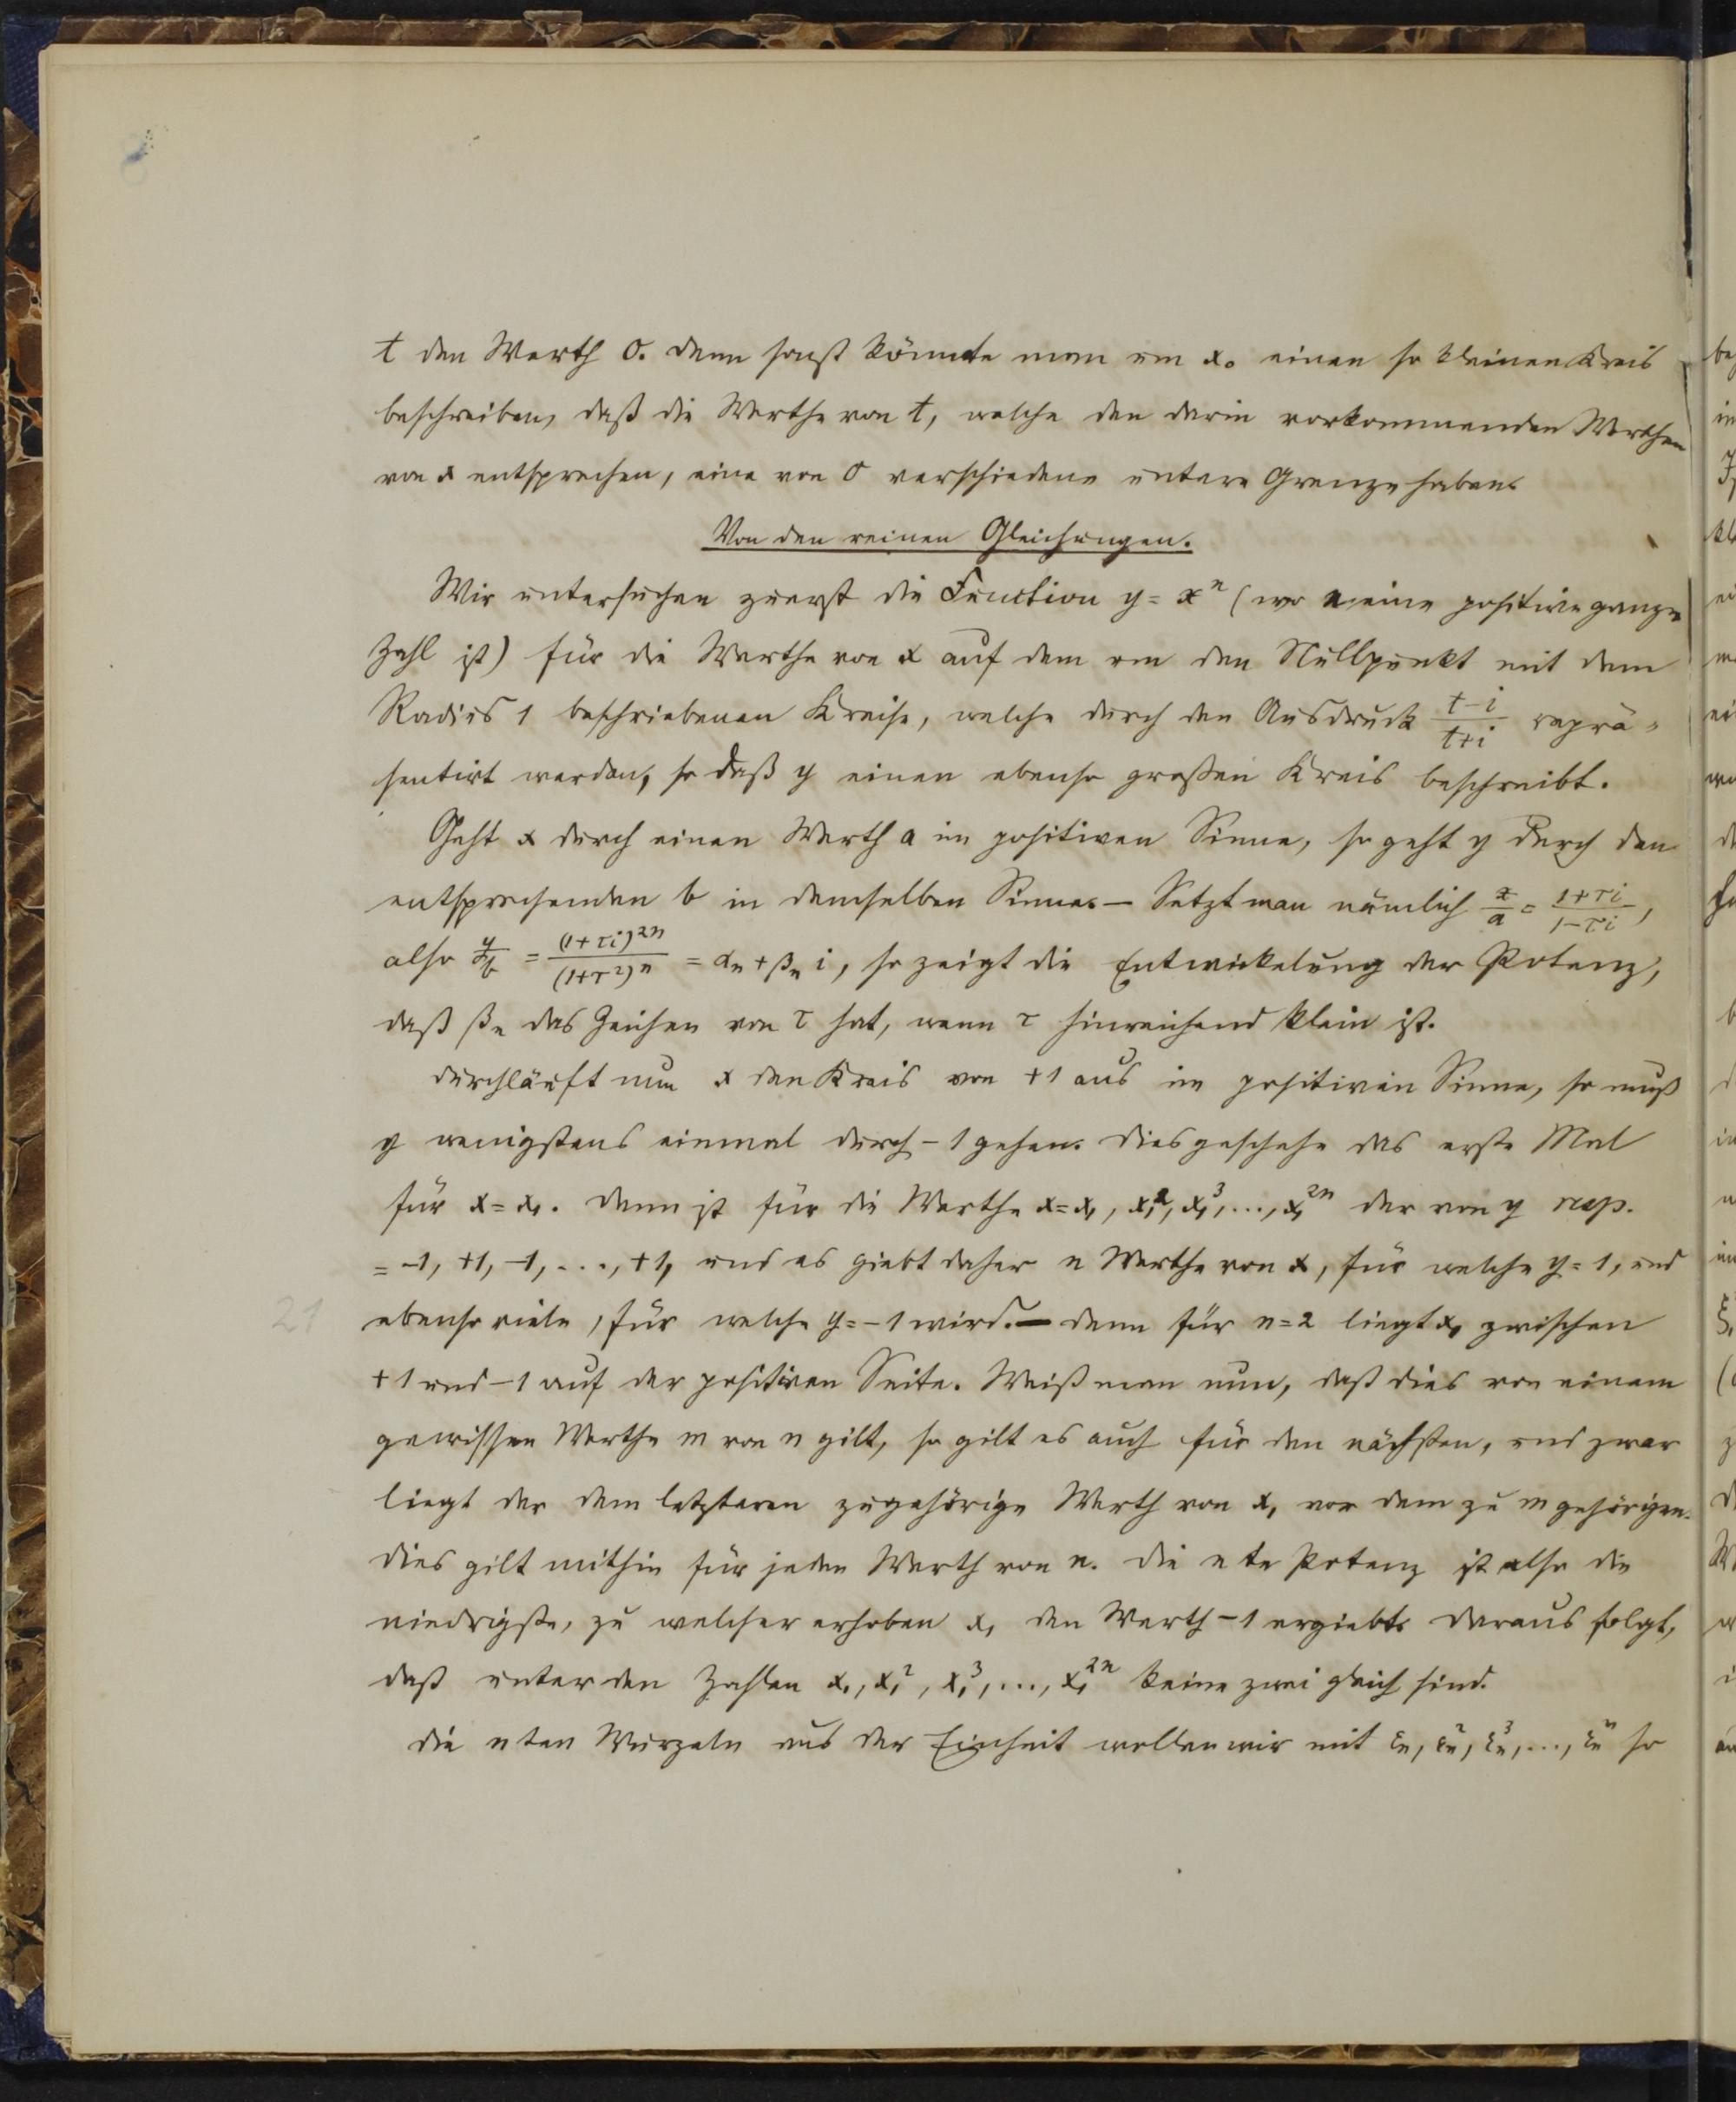 t den Werth 0. Denn sonst könnte man um x₀ einen so kleinen Kreis
beschreiben, daß die Werthe von t, welche den darin vorkommenden Werthen
von x entsprechen, eine von 0 verschiedene untere Grenze haben.
Von den reinen Gleichungen.
Wir untersuchen zuerst die Function y = xⁿ (wo n eine positive ganze
Zahl ist) für die Werthe von x auf dem um den Nullpunkt mit dem
Radius 1 beschriebenen Kreise, welche durch den Ausdruck (t-i)/(t+i) reprä-
sentirt werden, so daß y einen ebenso großen Kreis beschreibt.
Geht x durch einen Werth a im positiven Sinne, so geht y durch den
entsprechenden b in demselben Sinne. — Setzt man nämlich x/a = (1+τi)/(1-τi),
also y/b = (1+τi)²ⁿ/(1+τ²)ⁿ = αₙ+βₙ i, so zeigt die Entwickelung der Potenz,
daß βₙ das Zeichen von τ hat, wenn τ hinreichend klein ist.
Durchläuft nun x den Kreis von +1 aus im positiven Sinne, so muß
y wenigstens einmal durch -1 gehen. Dies geschehe das erste Mal
für x = x₁. Dann ist für die Werthe x = x₁, x₁², x₁³, ..., x₁²ⁿ der von y resp.
= -1, +1, -1, ..., +1, und es giebt daher n Werthe von x, für welche y = 1, und
ebenso viele, für welche y = -1 wird. — Denn für n = 2 liegt x₁ zwischen
+1 und -1 auf der positiven Seite. Weiß man nun, daß dies von einem
gewissen Werthe m von n gilt, so gilt es auch für den nächsten, und zwar
liegt der dem letzteren zugehörige Werth von x₁ vor dem zu m gehörigen.
Dies gilt mithin für jeden Werth von n. Die nte Potenz ist also die
niedrigste, zu welcher erhoben x₁ den Werth -1 ergiebt. Daraus folgt,
daß unter den Zahlen x₁, x₁², x₁³, ..., x₁²ⁿ keine zwei gleich sind.
21
Die nten Wurzeln aus der Einheit wollen wir mit εₙ, εₙ², εₙ³, ..., εₙⁿ so